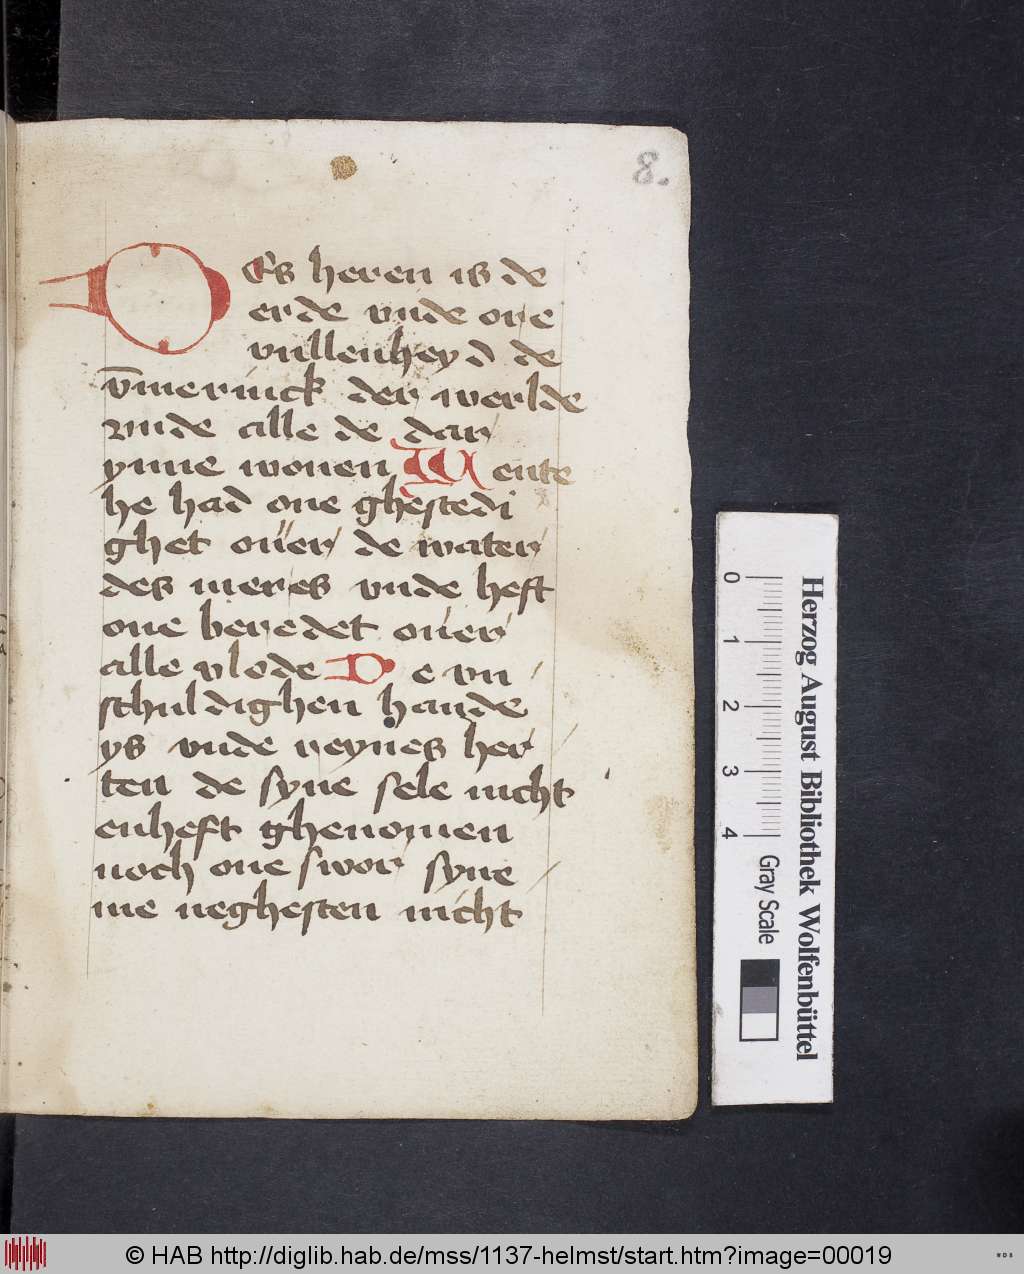 8.
DEs heren is de
erde vnde ore
vnllenheyd de
v̄merinck der werlde
vnde alle de dar
ynne wonen Wente
he had one ghestedi
ghet ouer de water
des meres vnde heft
one beredet ouer
alle vlode De vn
schuldighen hande
ys vnde reynes her
ten de syne sele nicht
enheft ghenomen
noch one swor syne
me neghesten nicht
0 1 2 3 4
Gray Scale
Herzog August Bibliothek Wolfenbüttel
© HAB http://diglib.hab.de/mss/1137-helmst/start.htm?image=00019
WDB